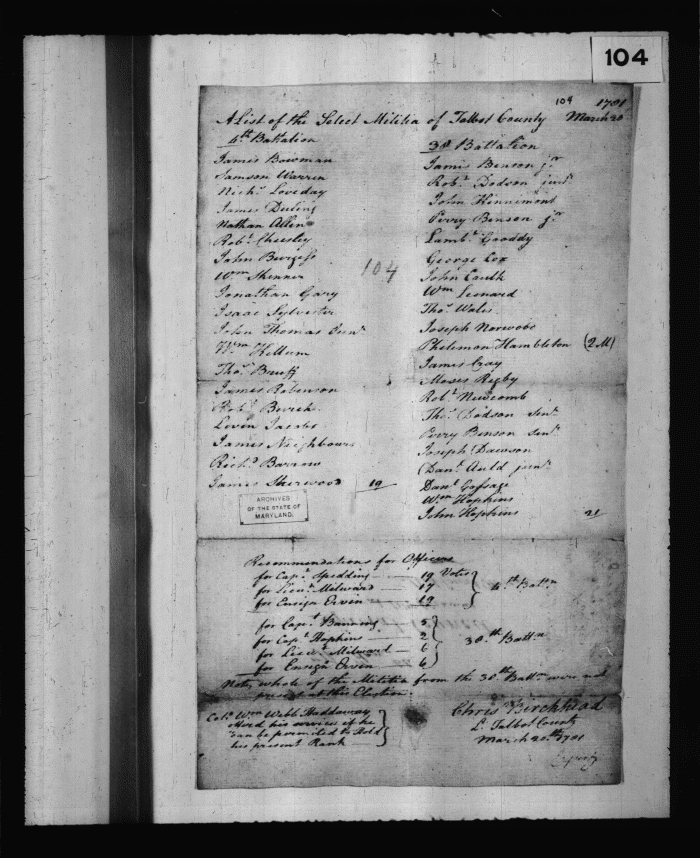 104
104 1781
A List of the Select Militia of Talbot County March 20
4th Battalion
James Bowman
Samson Warren
Nichs Loveday
James Dueling
Nathan Allen
Robt Cheesley
John Burgess
Wm Skinner
Jonathan Gary
Isaac Sylvester
John Thomas Junr
Wm Kellum
Thos Bruff
James Robinson
Robt Burch
Levin Jacobs
James Neighbours
Richd Barrow
James Sherwood 19
104
38 Battalion
James Benson jr
Robt Dodson junr
John Kinnemont
Perry Benson jr
Lambt Gooddy
George Cox
John Caulk
Wm Leonard
Thos Wales
Joseph Norwood
Philemon Hambleton (2 M)
James Gray
Moses Rigby
Robt Newcomb
Thos Dodson Senr
Perry Benson Senr
Joseph Dawson
Danl Auld junr
Danl Gossage
Wm Hopkins
John Hopkins 21
ARCHIVES
OF THE STATE OF
MARYLAND.
Recommendations for Officers
for Capt Spedding 19 Votes
for Lieut Milward 17
for Ensign Ervin 19
4th Battn
for Capt Banning 5
for Capt Hopkins 2
for Lieut Milward 6
for Ensign Ervin 6
38th Battn
Note, whole of the Militia from the 38th Battn were not
present at this Election.
Colo Wm Webb Haddaway
offered his services if he
can be permitted to Hold
his present Rank
Chris Birckhead
Lt Talbot County
March 20th 1781